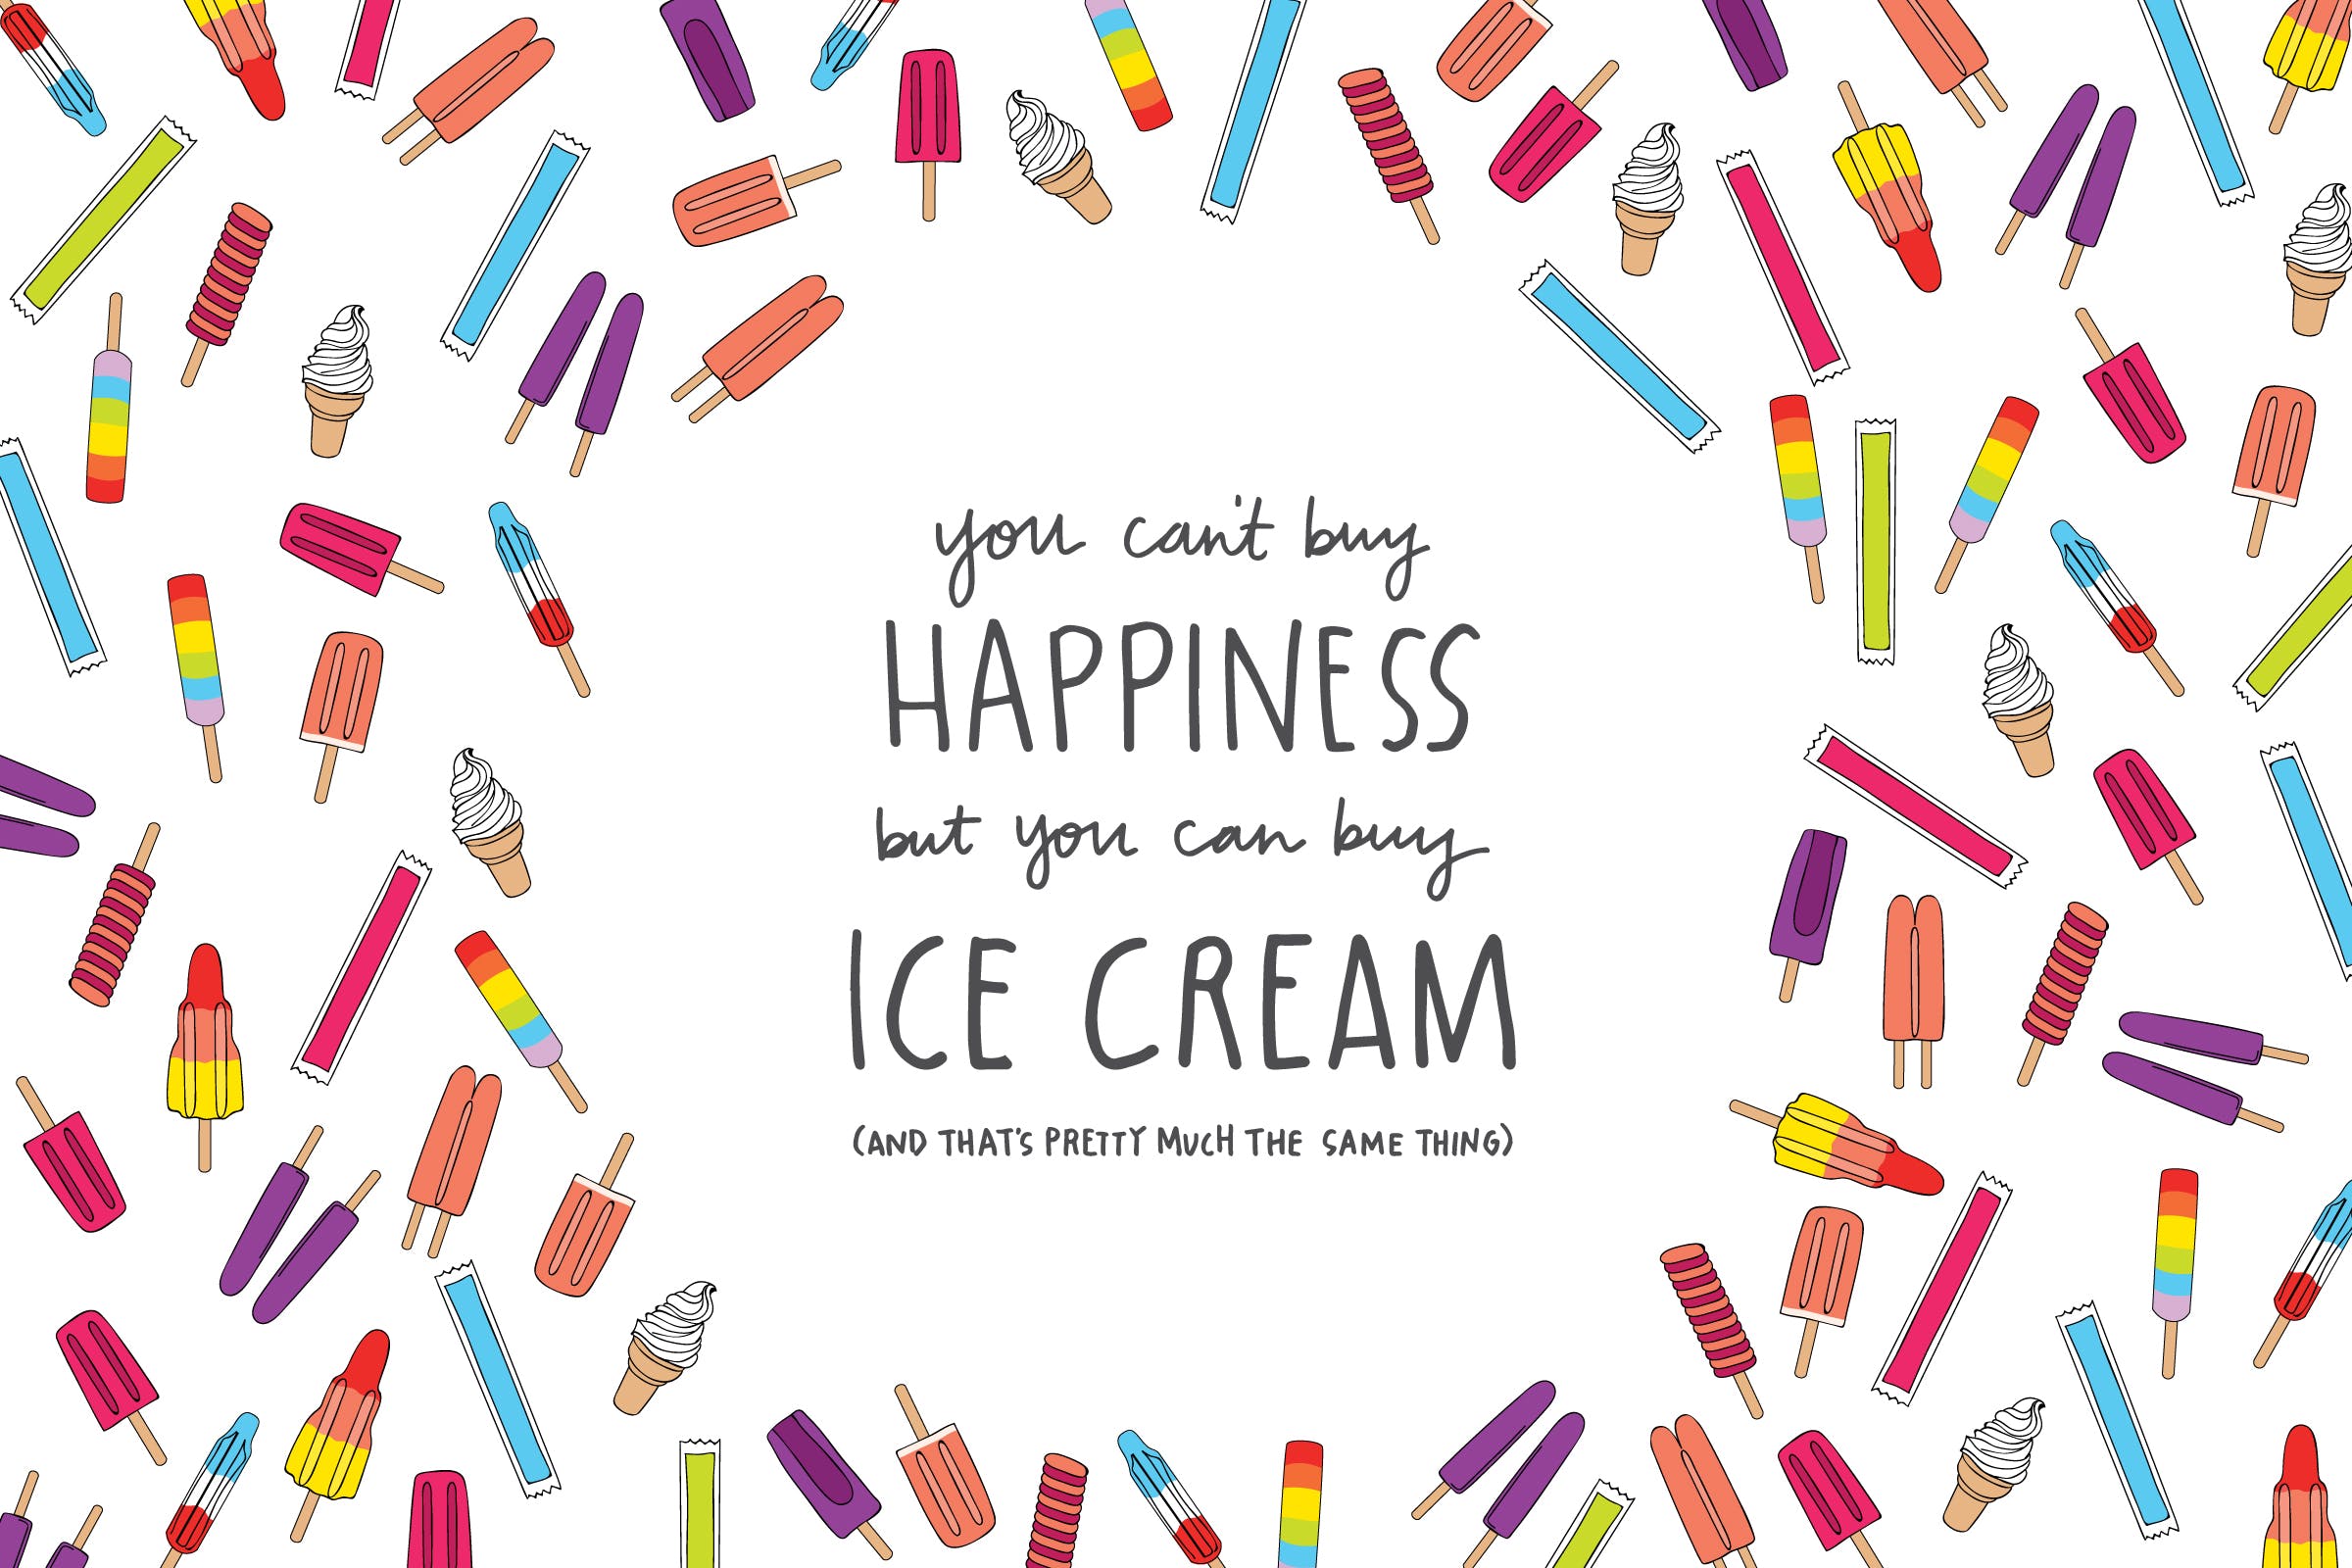 you can't buy
HAPPINESS
but you can buy
ICE CREAM
(AND THAT'S PRETTY MUCH THE SAME THING)